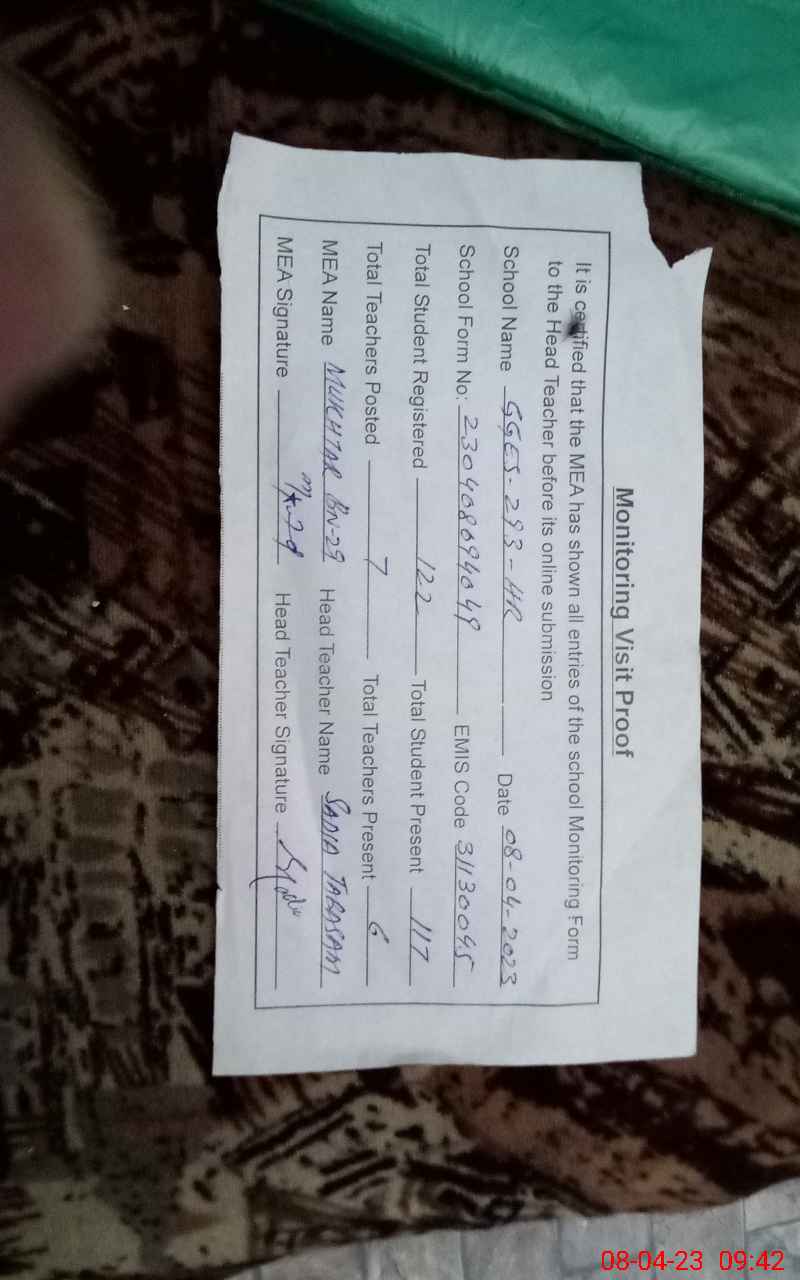 Monitoring Visit Proof
It is certified that the MEA has shown all entries of the school Monitoring Form
to the Head Teacher before its online submission
School Name GGES-293-HR Date 08-04-2023
School Form No: 230408094049 EMIS Code 31130045
Total Student Registered 122 Total Student Present 117
Total Teachers Posted 7 Total Teachers Present 6
MEA Name MUKHTAR BN-29 Head Teacher Name SADIA TABASAM
MEA Signature Head Teacher Signature
08-04-23 09:42